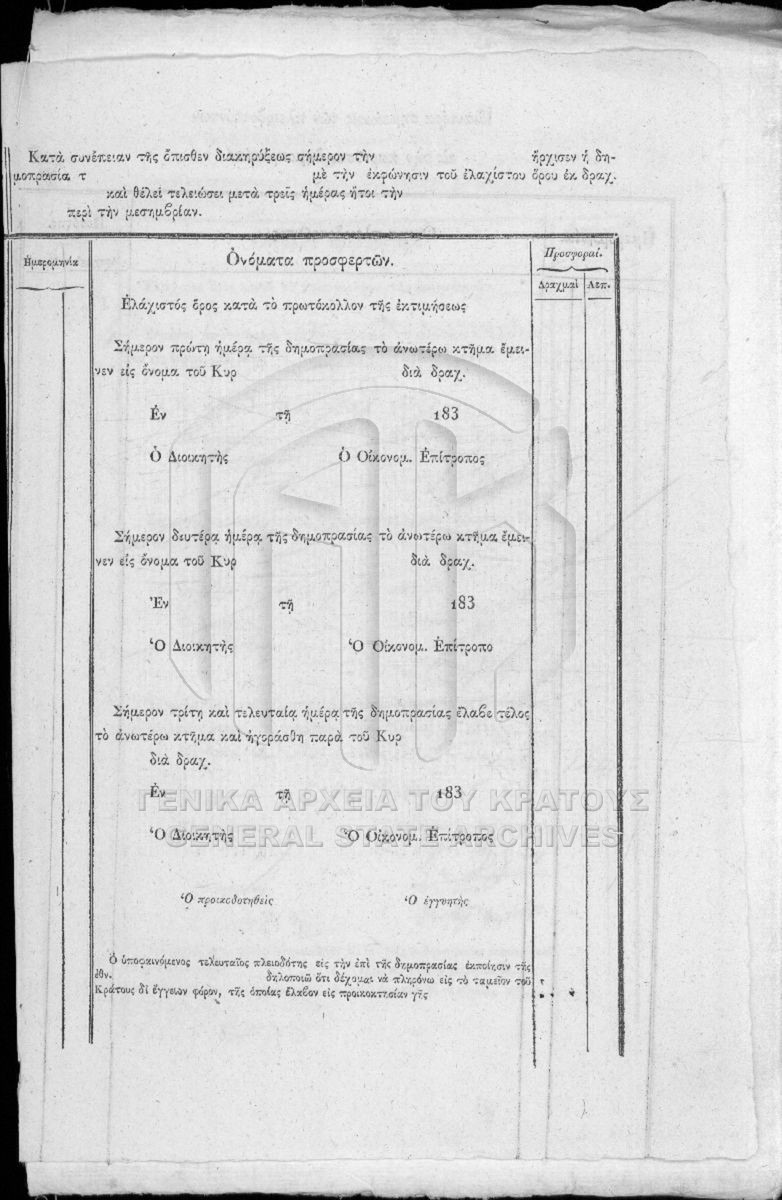 Κατὰ συνέπειαν τῆς ὄπισθεν διακηρύξεως σήμερον τὴν ἤρχισεν ἡ δη-
μοπρασία τ μὲ τὴν ἐκφώνησιν τοῦ ἐλαχίστου ὅρου ἐκ δραχ.
καὶ θέλει τελειώσει μετὰ τρεῖς ἡμέρας ἤτοι τὴν
περὶ τὴν μεσημβρίαν.
Ἡμερομηνία
Ὀνόματα προσφερτῶν.
Προσφοραί.
Δραχμαὶ Λεπ.
Ἐλάχιστός ὅρος κατὰ τὸ πρωτόκολλον τῆς ἐκτιμήσεως
Σήμερον πρώτη ἡμέρα τῆς δημοπρασίας τὸ ἀνωτέρω κτῆμα ἔμει-
νεν εἰς ὄνομα τοῦ Κυρ διὰ δραχ.
Ἐν τῇ 183
Ὁ Διοικητὴς Ὁ Οἰκονομ. Ἐπίτροπος
Σήμερον δευτέρα ἡμέρα τῆς δημοπρασίας τὸ ἀνωτέρω κτῆμα ἔμει-
νεν εἰς ὄνομα τοῦ Κυρ διὰ δραχ.
Ἐν τῇ 183
Ὁ Διοικητὴς Ὁ Οἰκονομ. Ἐπίτροπο
Σήμερον τρίτη καὶ τελευταία ἡμέρα τῆς δημοπρασίας ἔλαβε τέλος
τὸ ἀνωτέρω κτῆμα καὶ ἠγοράσθη παρὰ τοῦ Κυρ
διὰ δραχ.
Ἐν τῇ 183
ΓΕΝΙΚΑ ΑΡΧΕΙΑ ΤΟΥ ΚΡΑΤΟΥΣ
Ὁ Διοικητὴς Ὁ Οἰκονομ. Ἐπίτροπος
GENERAL STATE ARCHIVES
Ὁ προικοδοτηθεὶς Ὁ ἐγγυητὴς
Ὁ ὑποφαινόμενος τελευταῖος πλειοδότης εἰς τὴν ἐπὶ τῆς δημοπρασίας ἐκποίησιν τῆς
ἐθν. δηλοποιῶ ὅτι δέχομαι νὰ πληρόνω εἰς τὸ ταμεῖον τοῦ
Κράτους δἰ ἔγγειων φόρον, τῆς ὁποίας ἔλαβον εἰς προικοκτησίαν γῆς